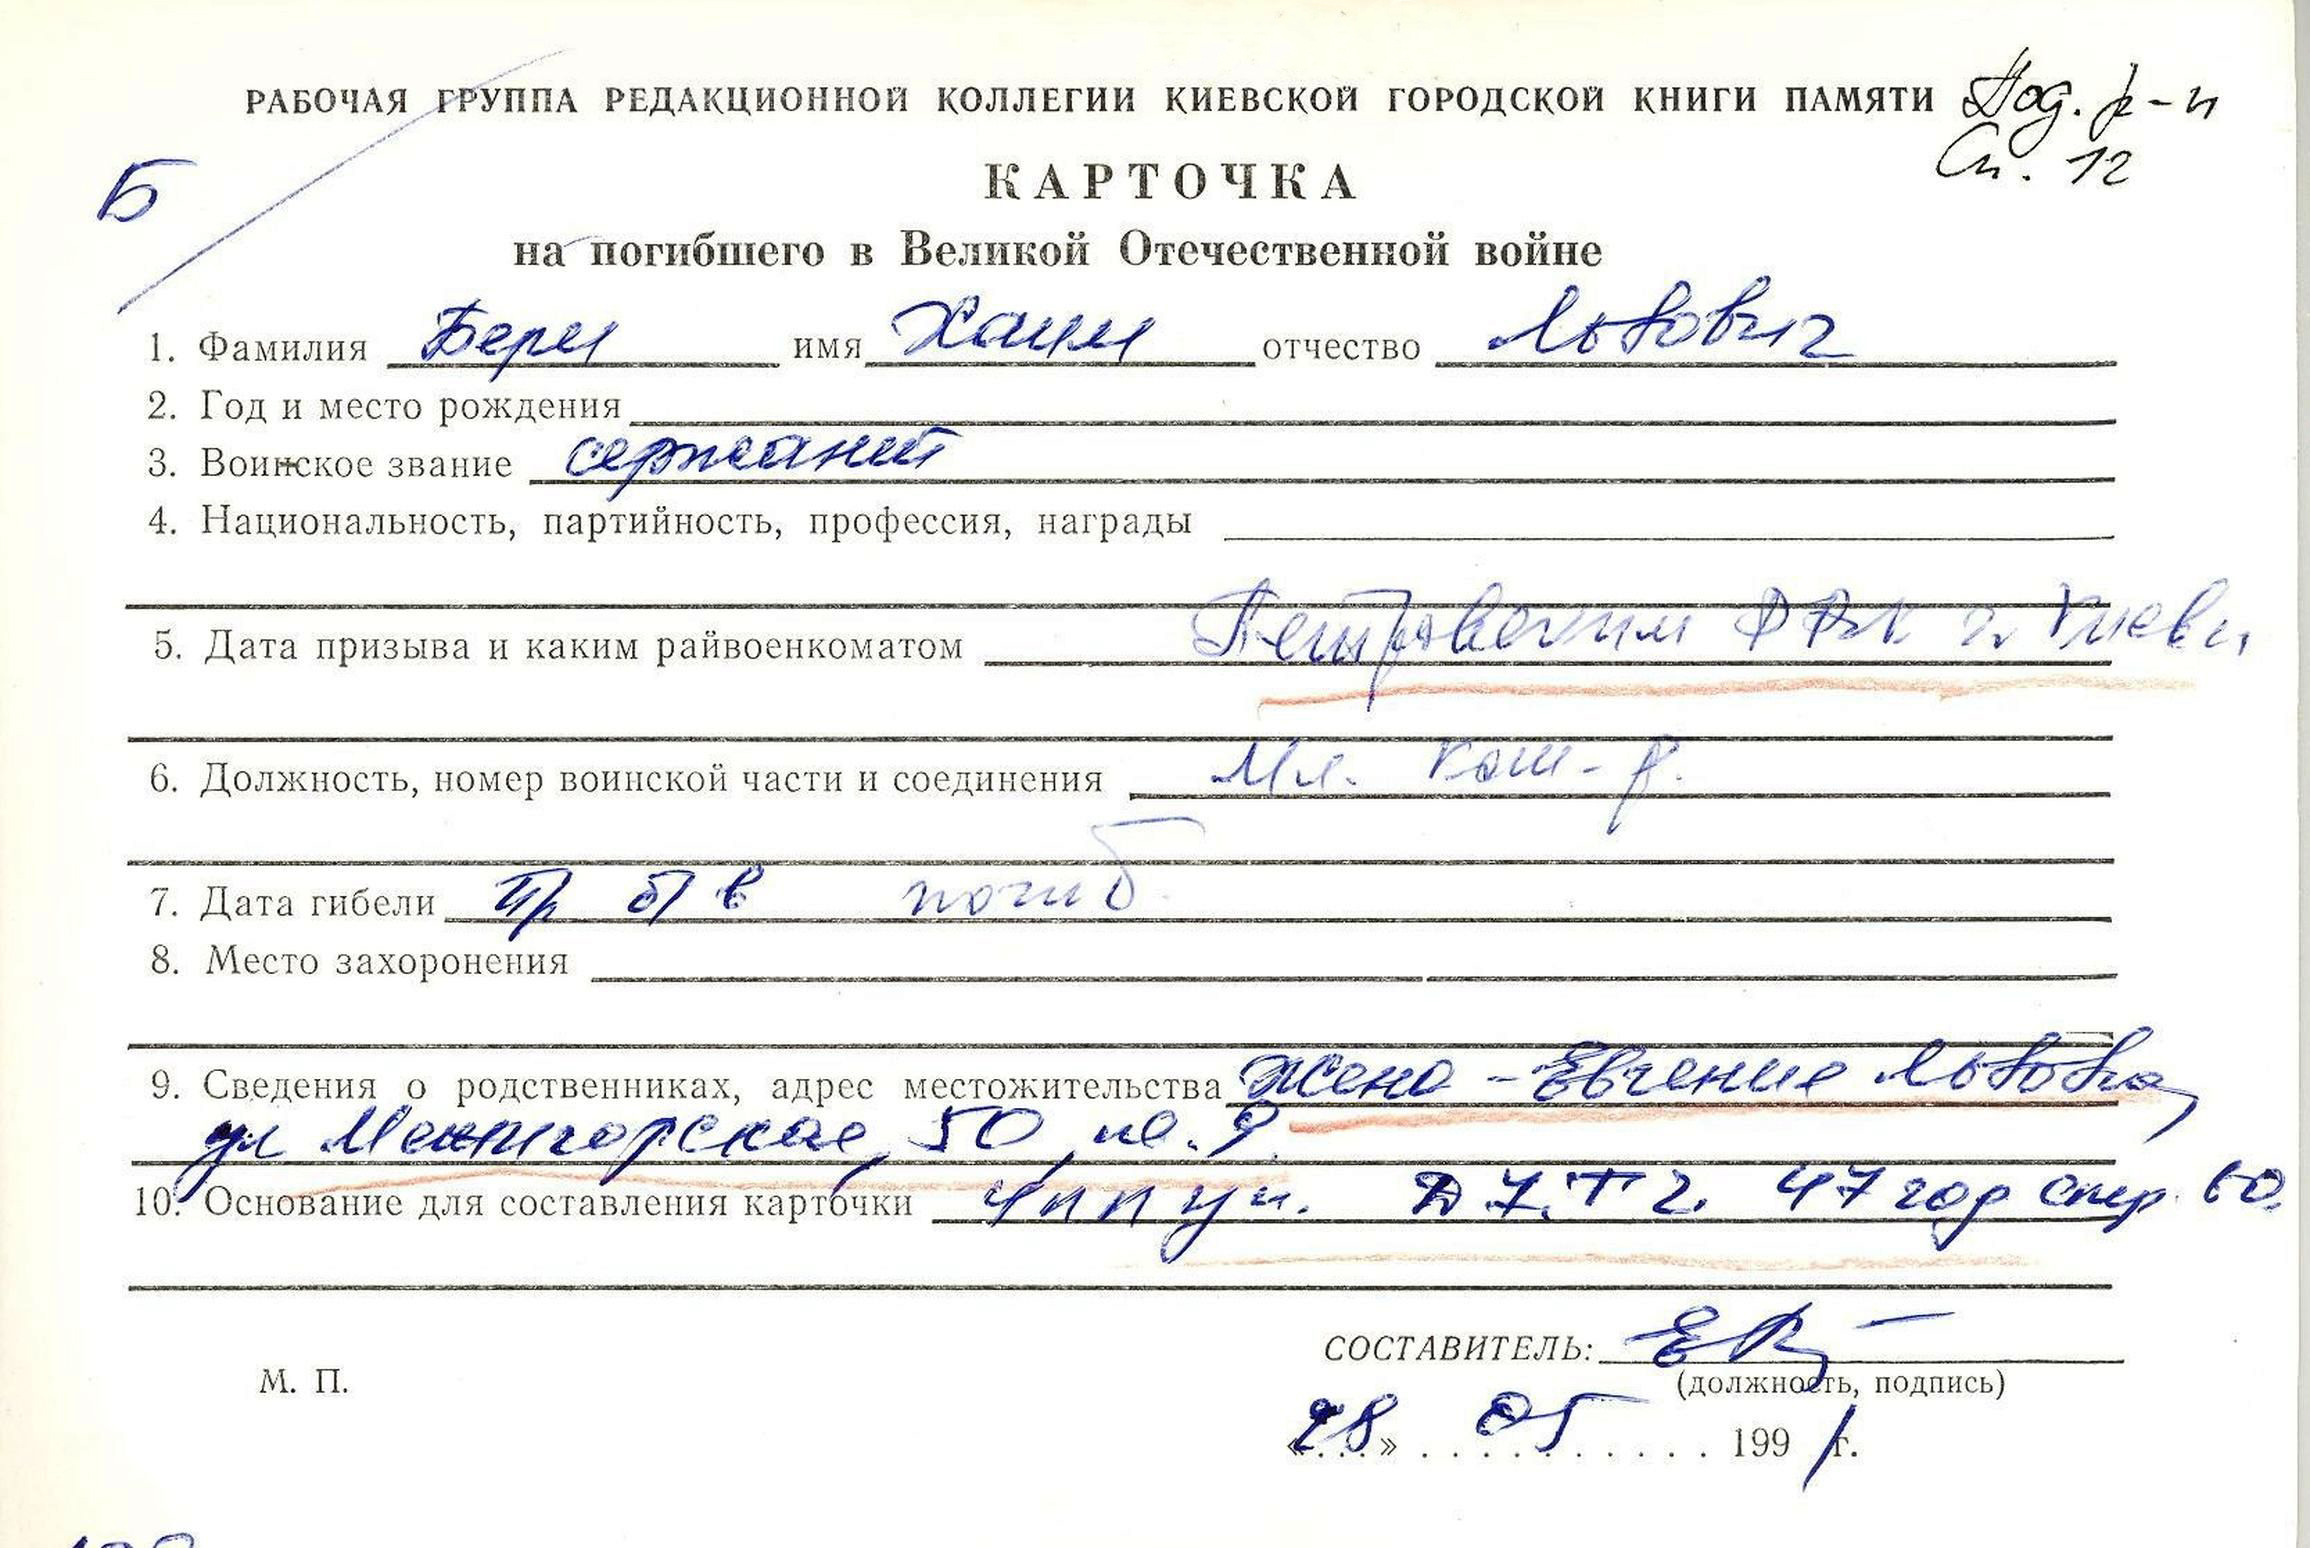 РАБОЧАЯ ГРУППА РЕДАКЦИОННОЙ КОЛЛЕГИИ КИЕВСКОЙ ГОРОДСКОЙ КНИГИ ПАМЯТИ Под. р-н
Сп. 12
Б
КАРТОЧКА
на погибшего в Великой Отечественной войне
1. Фамилия Берм имя Хаим отчество Львович
2. Год и место рождения
3. Воинское звание сержант
4. Национальность, партийность, профессия, награды
5. Дата призыва и каким райвоенкоматом Петровским РВК г. Киева
6. Должность, номер воинской части и соединения Мл. ком-р.
7. Дата гибели Пр б/в погиб.
8. Место захоронения
9. Сведения о родственниках, адрес местожительства Жена - Евгения Львовна
ул Межигорская, 50, кв. 9
10. Основание для составления карточки 47 год стр. 60.
СОСТАВИТЕЛЬ:
(должность, подпись)
М. П.
«28» 05 1991 г.